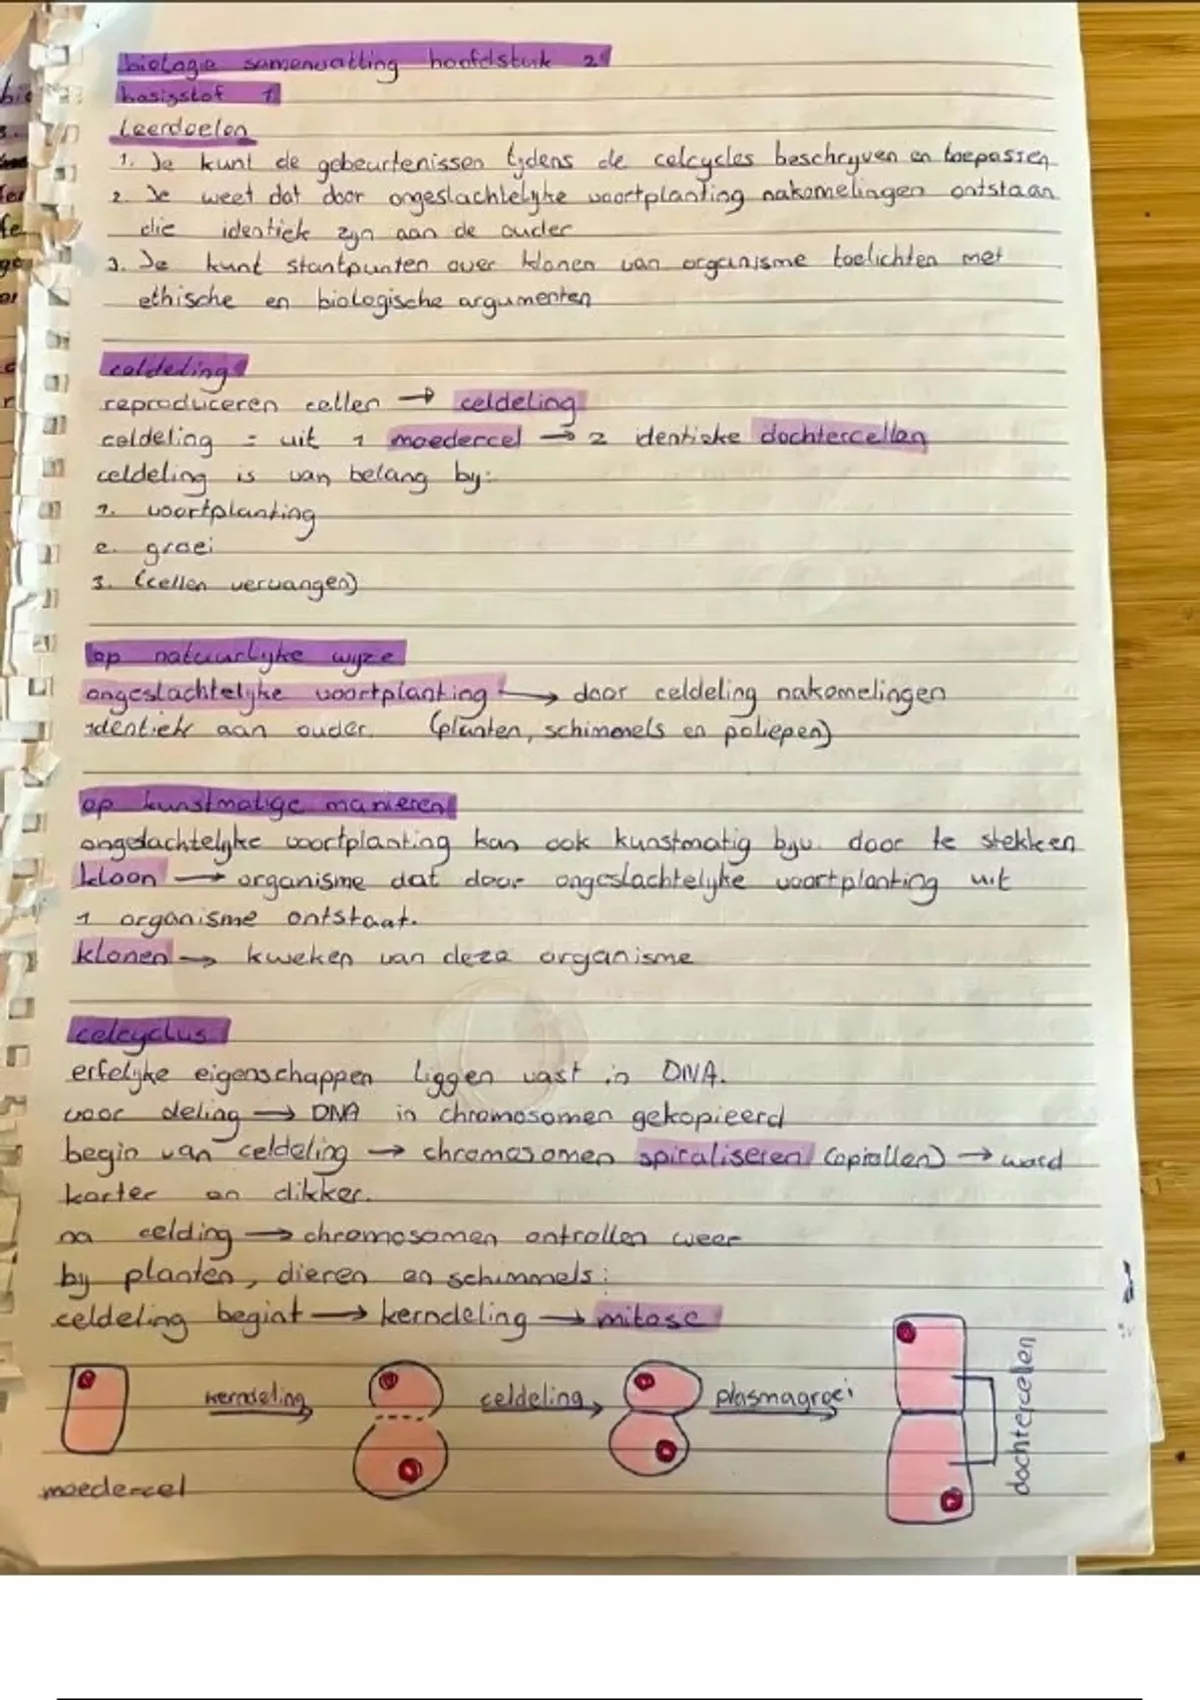 biologie samenvatting hoofdstuk 2
basisstof 1
Leerdoelen
1. Je kunt de gebeurtenissen tijdens de celcycles beschrijven en toepassen
2. Je weet dat door ongeslachtelijke voortplanting nakomelingen ontstaan
die identiek zijn aan de ouder
3. Je kunt stantpunten over klonen van organisme toelichten met
ethische en biologische argumenten
celdeling
reproduceren cellen → celdeling
celdeling = uit 1 moedercel → 2 identieke dochtercellen
celdeling is van belang bij:
1. voortplanting
2. groei
3. (cellen vervangen)
op natuurlijke wijze
ongeslachtelijke voortplanting → door celdeling nakomelingen
identiek aan ouder. (planten, schimmels en poliepen)
op kunstmatige manieren
ongeslachtelijke voortplanting kan ook kunstmatig bijv. door te stekken
kloon → organisme dat door ongeslachtelijke voortplanting uit
1 organisme ontstaat.
klonen → kweken van deze organisme
celcyclus
erfelijke eigenschappen liggen vast in DNA.
voor deling → DNA in chromosomen gekopieerd
begin van celdeling → chromosomen spiraliseren (oprollen) → word
korter en dikker.
na celding → chromosomen ontrollen weer
bij planten, dieren en schimmels:
celdeling begint → kerndeling → mitose
kerndeling celdeling plasmagroei
dochtercellen
moedercel